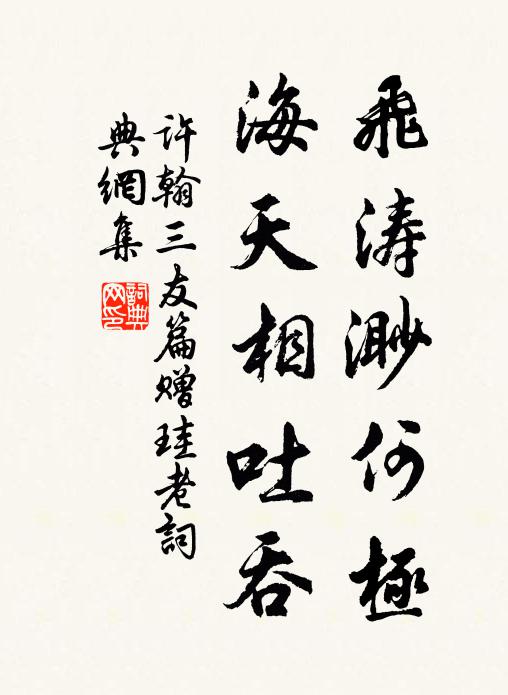 飛濤渺何極
海天相吐吞
許翰三友篇贈珪老詞
典網集
詞典網印